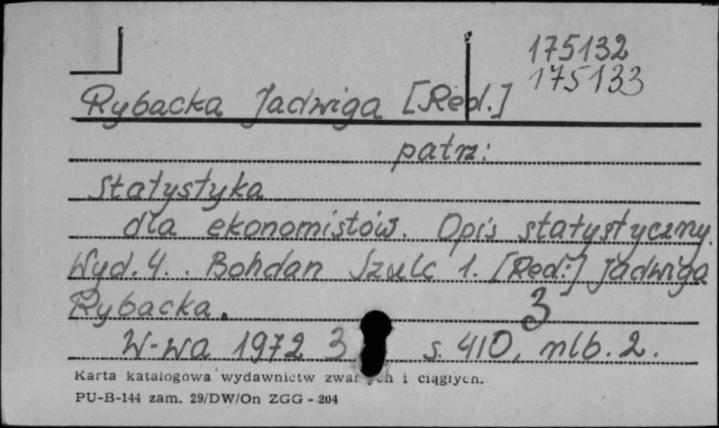 175132
175133
Rybacka Jadwiga [Red.]
patrz:
Statystyka
dla ekonomistów. Opis statystyczny.
Wyd. 4. . Bohdan Szulc 1. [Red.:] Jadwiga
Rybacka. 3
W-wa 1972 3 s. 410, nlb. 2.
Karta katalogowa wydawnictw zwar ych i ciągłych.
PU-B-144 zam. 29/DW/On ZGG - 204